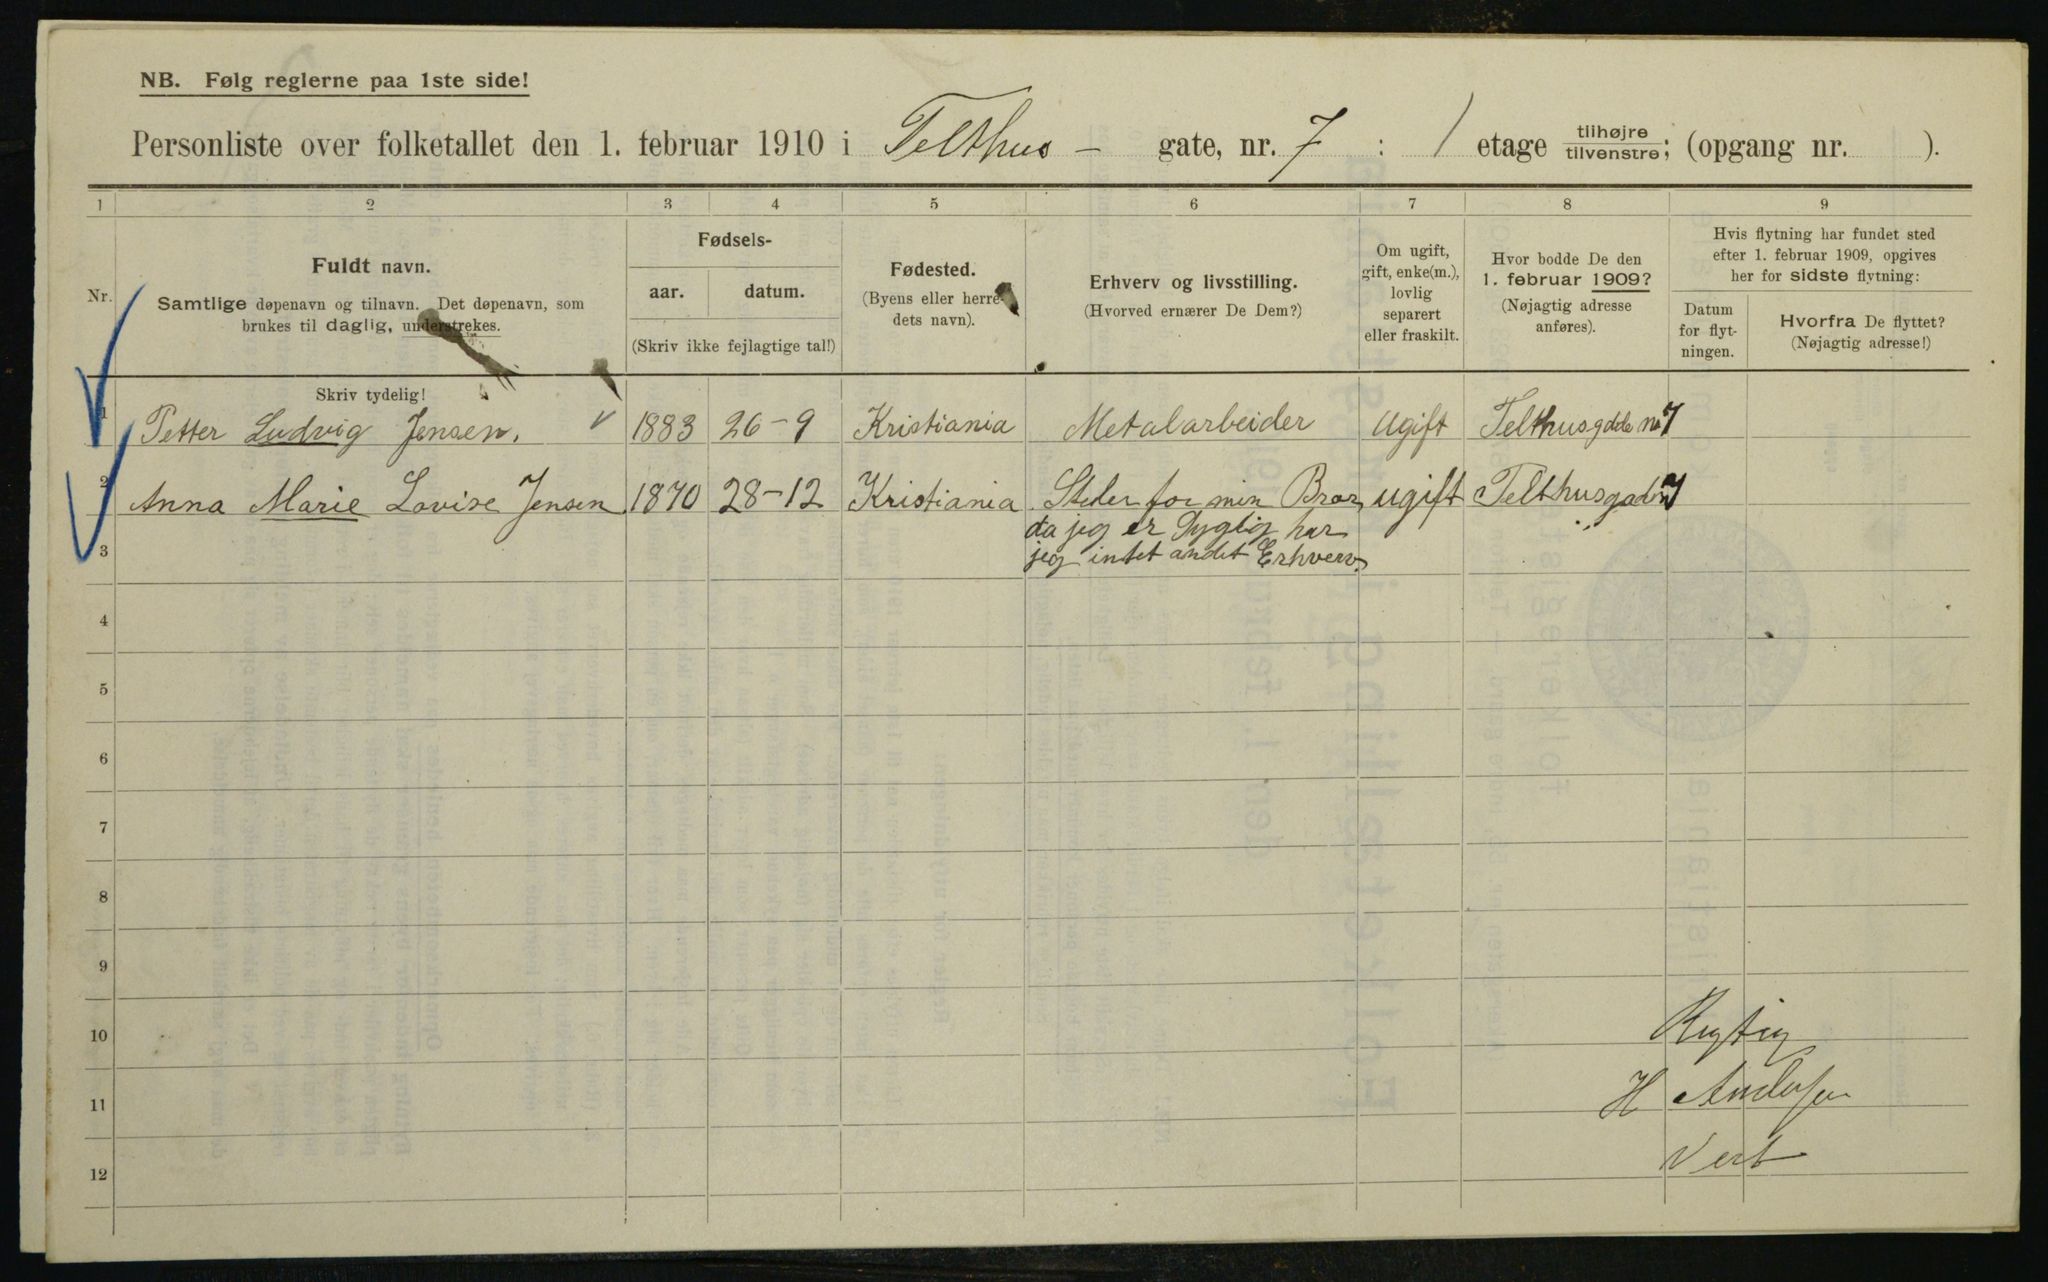 NB. Følg reglerne paa 1ste side!
Personliste over folketallet den 1. februar 1910 i Telthus – gate, nr. 7 : 1 etage tilhøjre tilvenstre; (opgang nr. ).
1 2 3 4 5 6 7 8 9
Nr.
Fuldt navn.
Samtlige døpenavn og tilnavn. Det døpenavn, som
brukes til daglig, understrekes.
Skriv tydelig!
Fødsels-
aar. datum.
(Skriv ikke fejlagtige tal!)
Fødested.
(Byens eller herre-
dets navn).
Erhverv og livsstilling.
(Hvorved ernærer De Dem?)
Om ugift,
gift, enke(m.),
lovlig
separert
eller fraskilt.
Hvor bodde De den
1. februar 1909?
(Nøjagtig adresse
anføres).
Hvis flytning har fundet sted
efter 1. februar 1909, opgives
her for sidste flytning:
Datum
for flyt-
ningen.
Hvorfra De flyttet?
(Nøjagtig adresse!)
1 Petter Ludvig Jensen. 1883 26–9 Kristiania Metalarbeider Ugift 7
2 Anna Marie Lovise Jensen 1870 28–12 Kristiania Steler for min Bror ugift 7
da jeg er Sygelig har
3 jeg intet andet Erhverv.
4
5
6
7
8
9
10 Rigtig
11 H Andersen
12 Vert